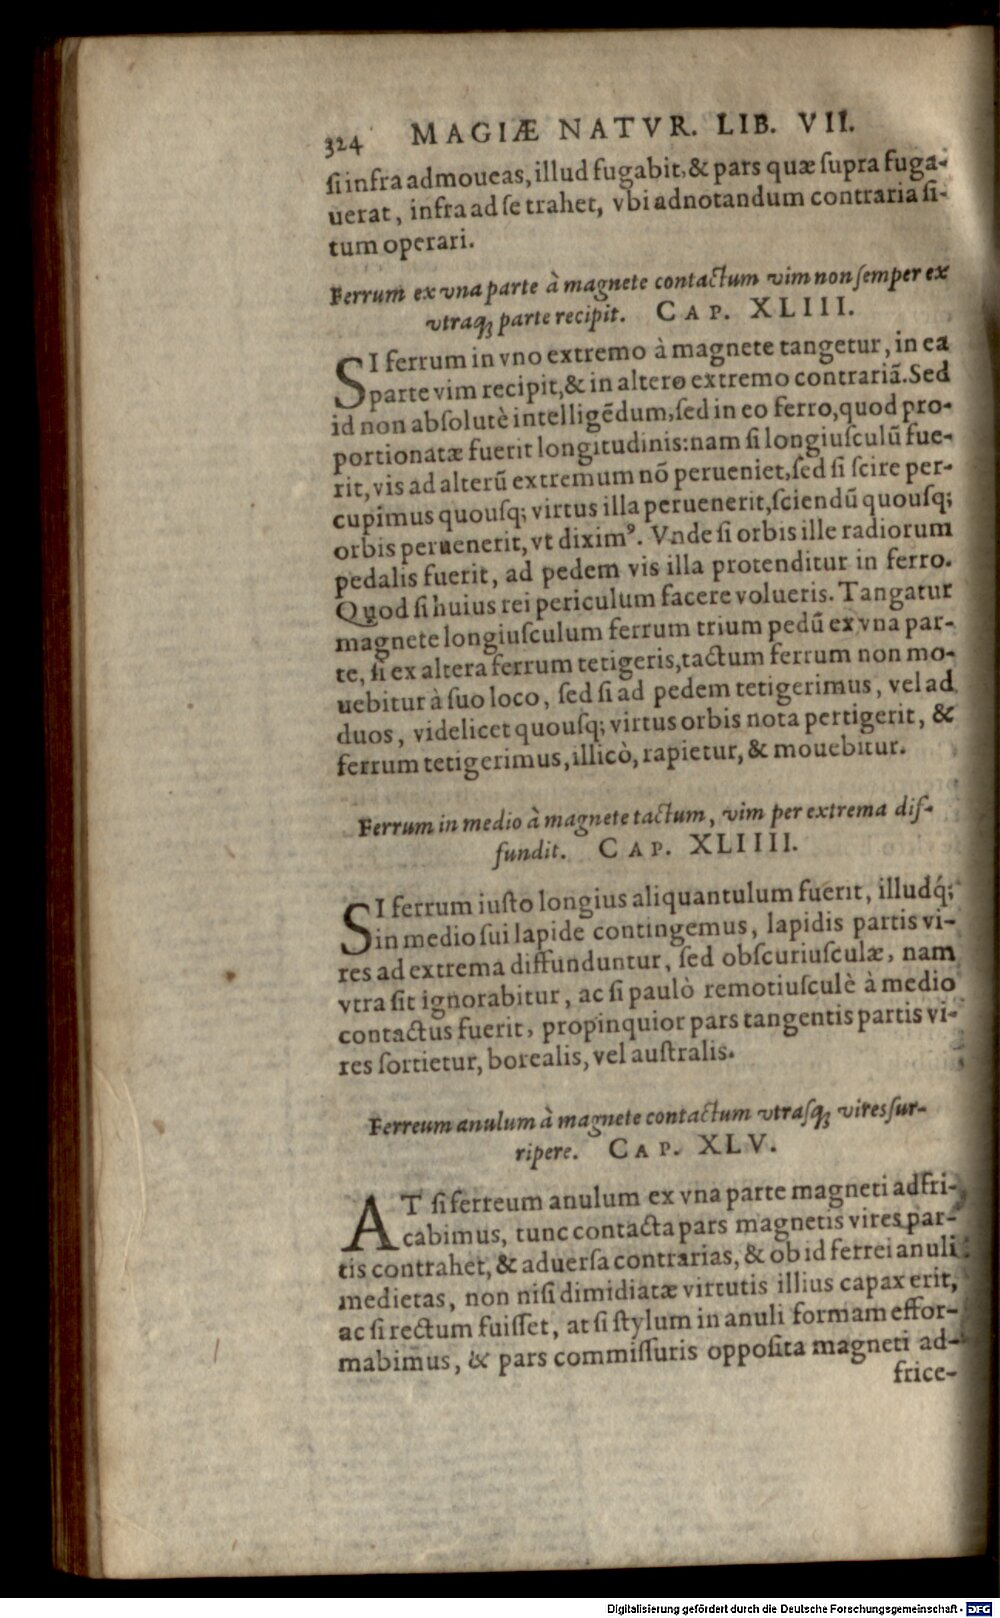 324 MAGIÆ NATVR. LIB. VII.
ſi infra admoueas, illud fugabit, & pars quæ ſupra fuga-
uerat, infra ad ſe trahet, vbi adnotandum contraria ſi-
tum operari.
Ferrum ex vna parte à magnete contactum vim non ſemper ex
vtraq; parte recipit. CAP. XLIII.
SI ferrum in vno extremo à magnete tangetur, in ea
parte vim recipit, & in altero extremo contrariã. Sed
id non abſolutè intelligẽdum, ſed in eo ferro, quod pro-
portionatæ fuerit longitudinis: nam ſi longiuſculũ fue-
rit, vis ad alterũ extremum nõ perueniet, ſed ſi ſcire per-
cupimus quouſq; virtus illa peruenerit, ſciendũ quouſq;
orbis peruenerit, vt diximꝰ. Vnde ſi orbis ille radiorum
pedalis fuerit, ad pedem vis illa protenditur in ferro.
Quod ſi huius rei periculum facere volueris. Tangatur
magnete longiuſculum ferrum trium pedũ ex vna par-
te, ſi ex altera ferrum tetigeris, tactum ferrum non mo-
uebitur à ſuo loco, ſed ſi ad pedem tetigerimus, vel ad
duos, videlicet quouſq; virtus orbis nota pertigerit, &
ferrum tetigerimus, illicò, rapietur, & mouebitur.
Ferrum in medio à magnete tactum, vim per extrema diſ-
fundit. CAP. XLIIII.
SI ferrum iuſto longius aliquantulum fuerit, illudq́;
in medio ſui lapide contingemus, lapidis partis vi-
res ad extrema diffunduntur, ſed obſcuriuſculæ, nam
vtra ſit ignorabitur, ac ſi paulò remotiuſculè à medio
contactus fuerit, propinquior pars tangentis partis vi-
res ſortietur, borealis, vel auſtralis.
Ferreum anulum à magnete contactum vtraſq; vires ſur-
ripere. CAP. XLV.
AT ſi ferreum anulum ex vna parte magneti adfri-
cabimus, tunc contacta pars magnetis vires par-
tis contrahet, & aduerſa contrarias, & ob id ferrei anuli
medietas, non niſi dimidiatæ virtutis illius capax erit,
ac ſi rectum fuiſſet, at ſi ſtylum in anuli formam effor-
mabimus, & pars commiſſuris oppoſita magneti ad-
frice-
Digitalisierung gefördert durch die Deutsche Forschungsgemeinschaft - DFG